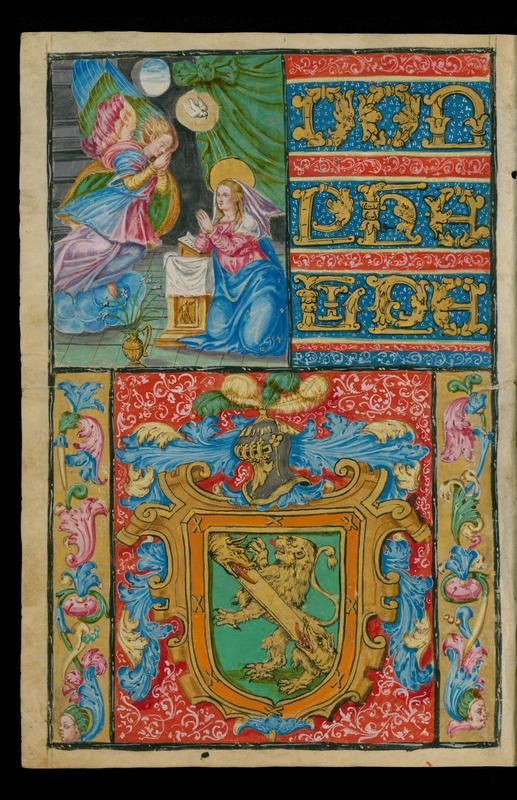 DON
PHE
LIPE